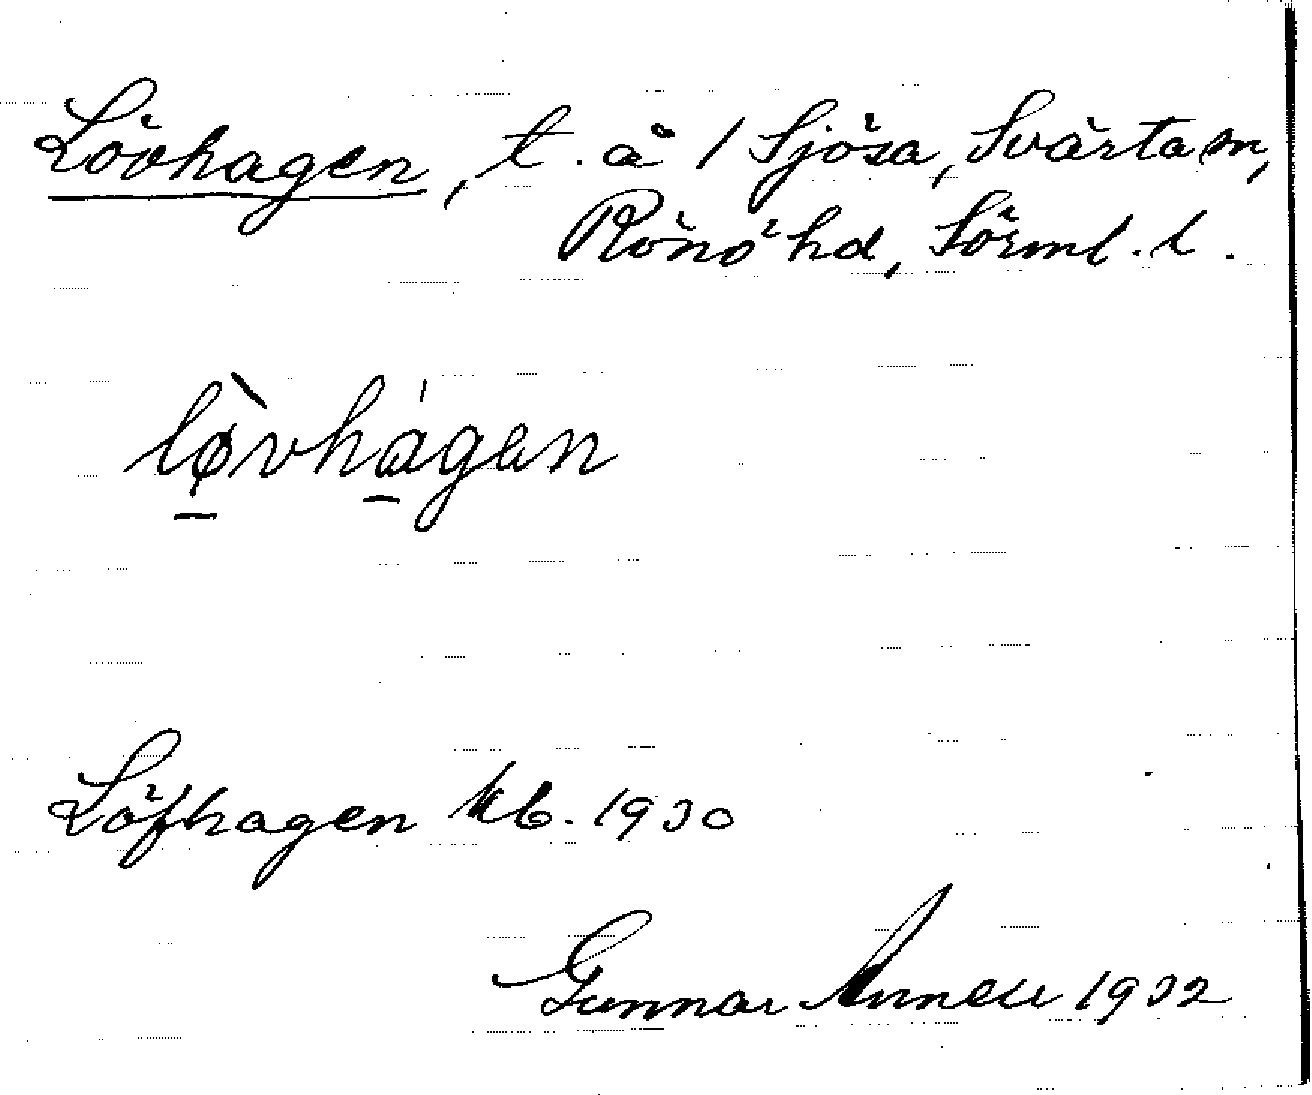 Lövhagen, t. å 1 Sjösa, Svärta sn,
Rönö hd, Sörml. l.
lø̀vhágen
Löfhagen kb. 1930
Gunnar Annell 1932